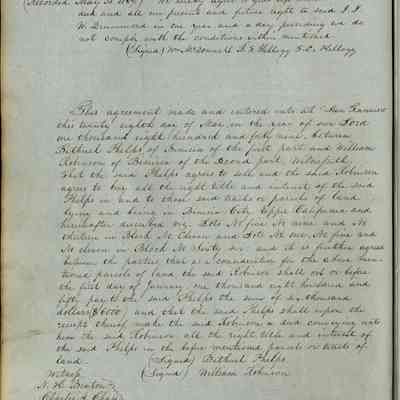 (Recorded May 31 1849) We hereby agree to give up
deed and all our present and future right to said J. F.
W. Drummond in one year and a day providing we do
not comply with the conditions within mentioned
(Signed) Wm McDonnell
This agreement made and entered into at San Francisco
this twenty eighth day of May in the year of our Lord
one thousand eight hundred and forty nine between
Bethuel Phelps of Benicia of the first part and William
Robinson of Benicia of the second part, Witnesseth,
that the said Phelps agrees to sell and the said Robinson
agrees to buy all the right title and interest of the said
Phelps in and to those said tracts or parcels of land
lying and being in Benicia City Upper California and
hereinafter described viz. Lots No five No nine and No
thirteen in Block No Eleven and Lots No one, No five and
No eleven in Block No sixty six and it is further agreed
between the parties that as a consideration for the above men-
tioned parcels of land the said Robinson shall on or before
the first day of January one thousand eight hundred and
fifty pay to the said Phelps the sum of six thousand
dollars ($6000) and that the said Phelps shall upon the
receipt thereof make the said Robinson a deed conveying unto
him the said Robinson all the right title and interest of
the said Phelps in the before mentioned parcels or tracts of
land. (Signed) Bethuel Phelps
Witness (Signed) William Robinson
N. H.
Charles A.